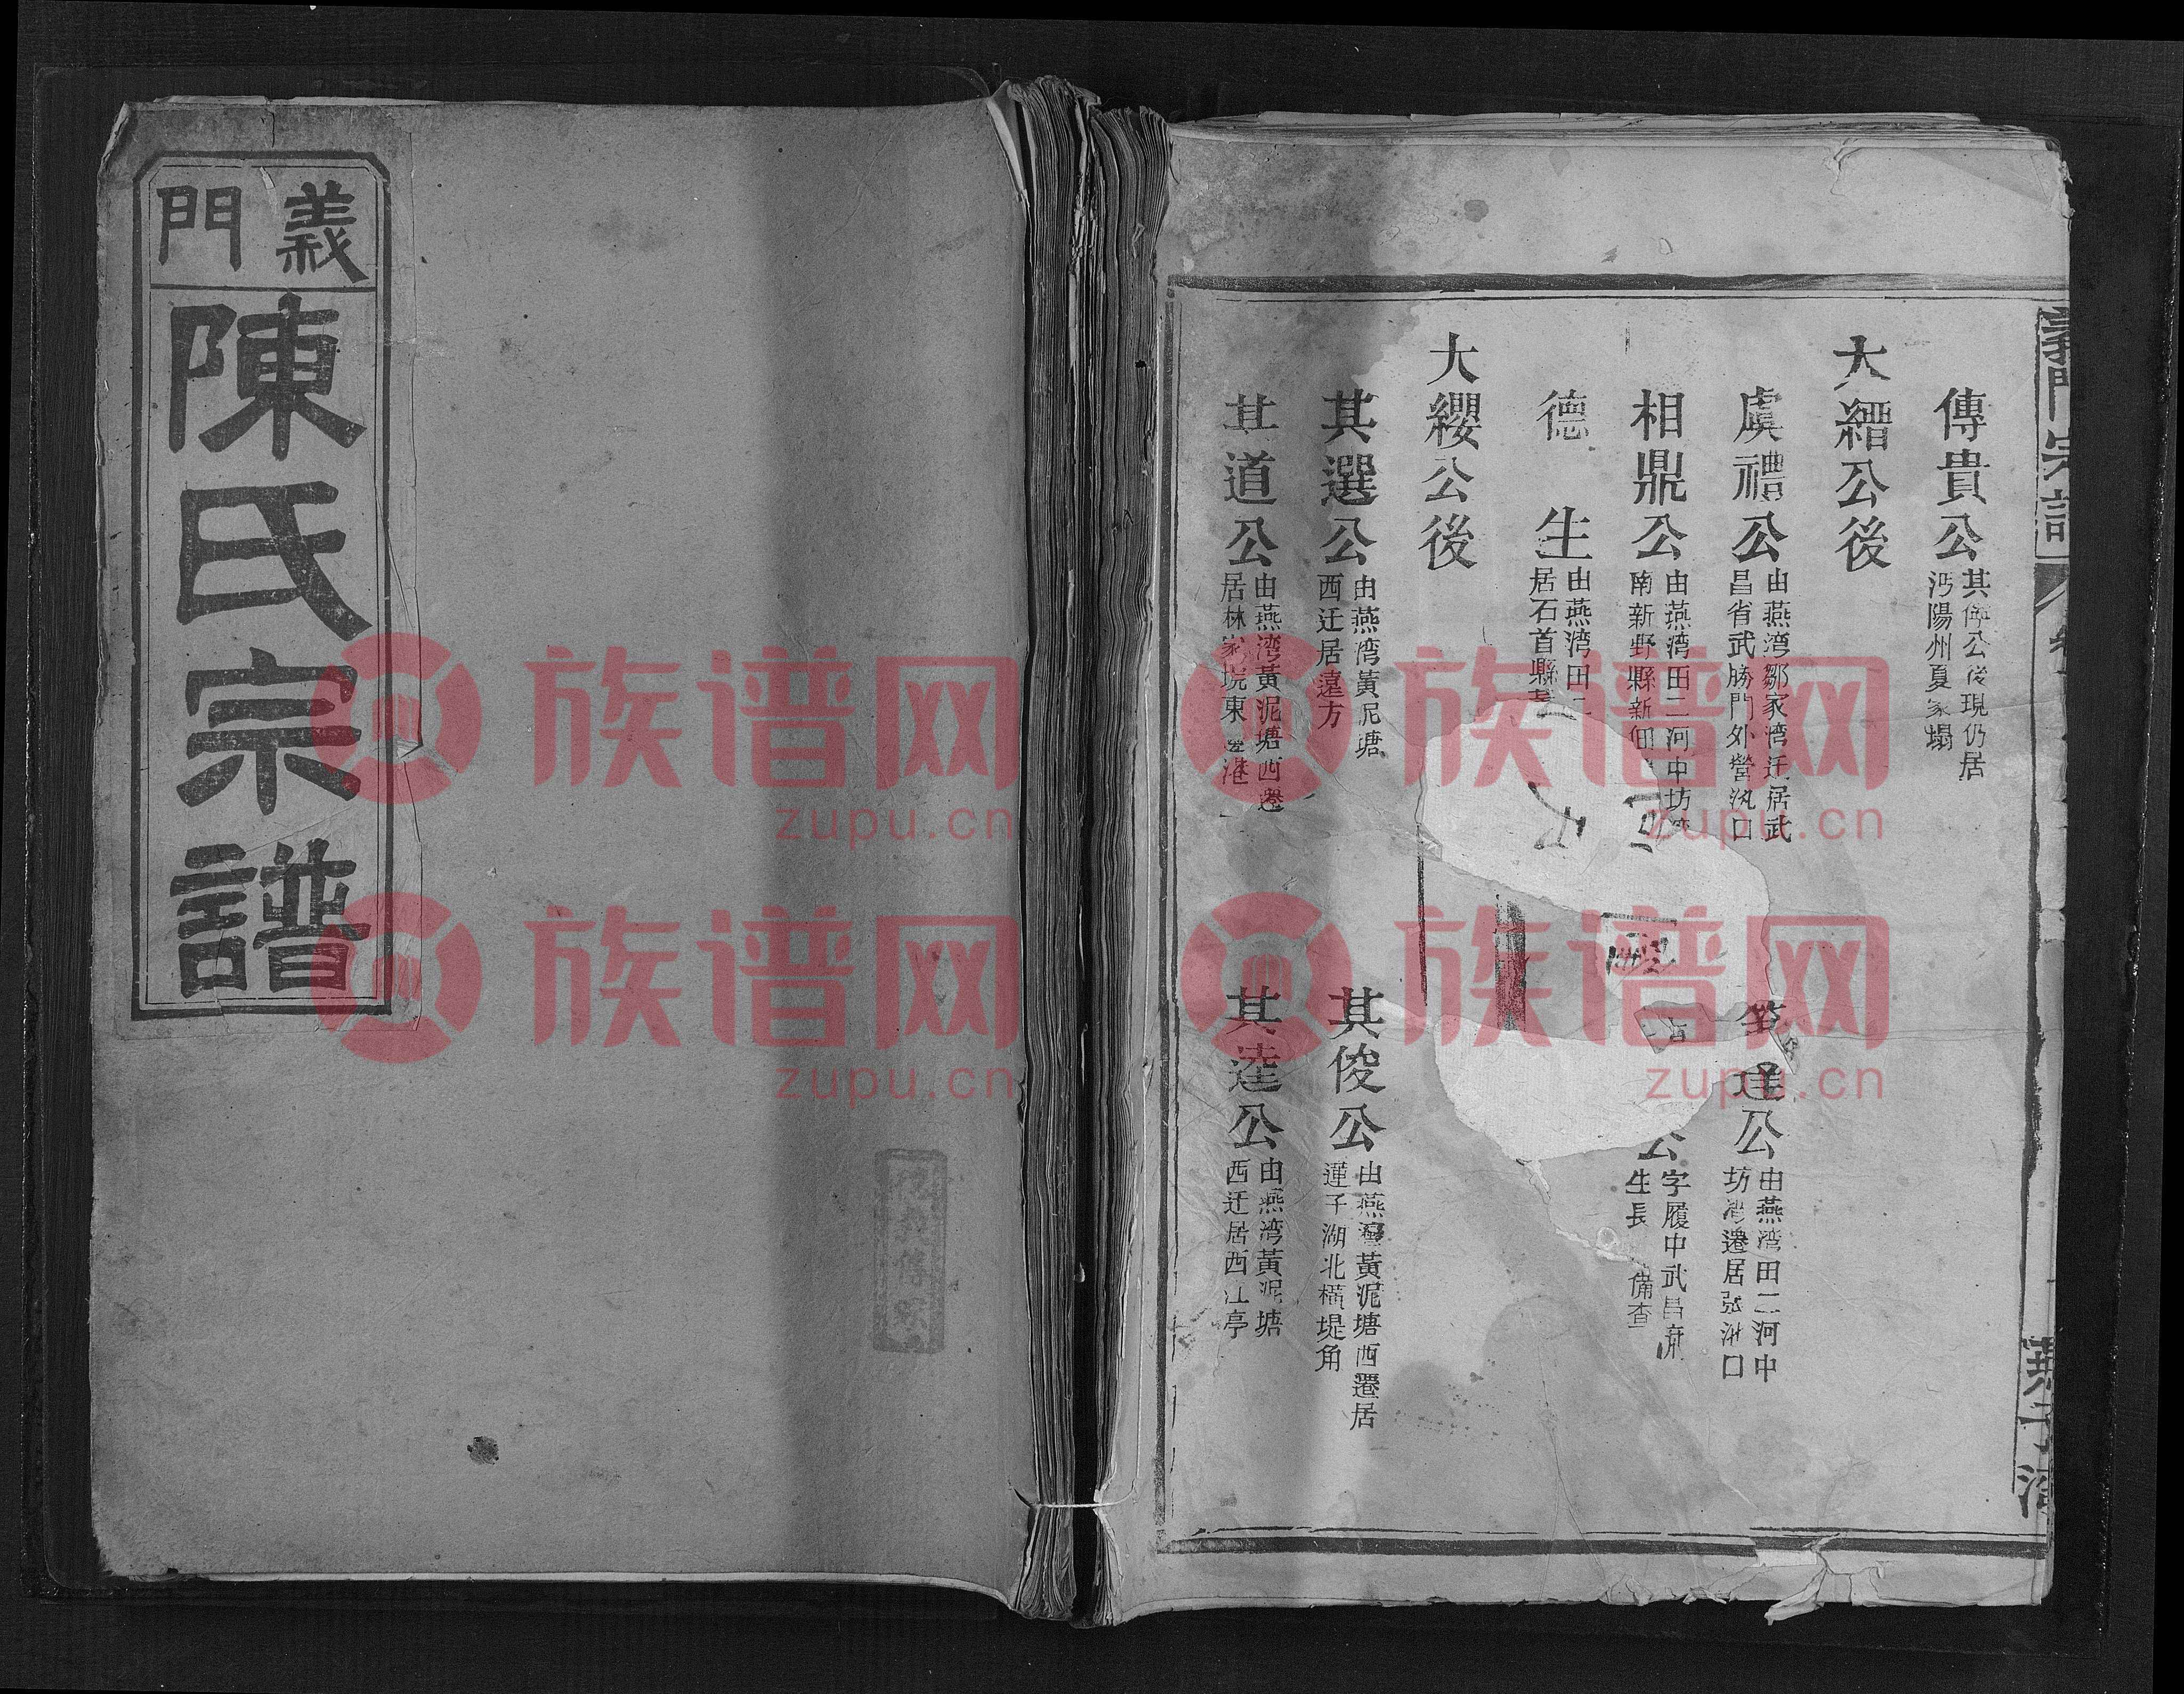 義門
陳氏宗譜
傳貴公
其
公後現仍居
沔陽州夏家塌
大縉公後
虞禮公
由燕湾鄒家湾迁居武
昌省武勝門外營汛口
達公
由燕湾田二河中
坊湾遷居張洲口
相鼎公
由燕湾田二河中坊湾
南新野縣新佃
公
字履中武昌府
生長
備查
德生
由燕湾田二
居石首縣
大纓公後
其選公
由燕湾黃泥塘
西迁居遠方
其俊公
由燕灣黃泥塘西遷居
蓮子湖北橫堤角
其道公
由燕湾黃泥塘西遷
居林家垸東
港
其達公
由燕湾黃泥塘
西迁居西江亭
義門宗譜
燕子湾
族谱网
zupu.cn
族谱网
zupu.cn
族谱网
zupu.cn
族谱网
zupu.cn